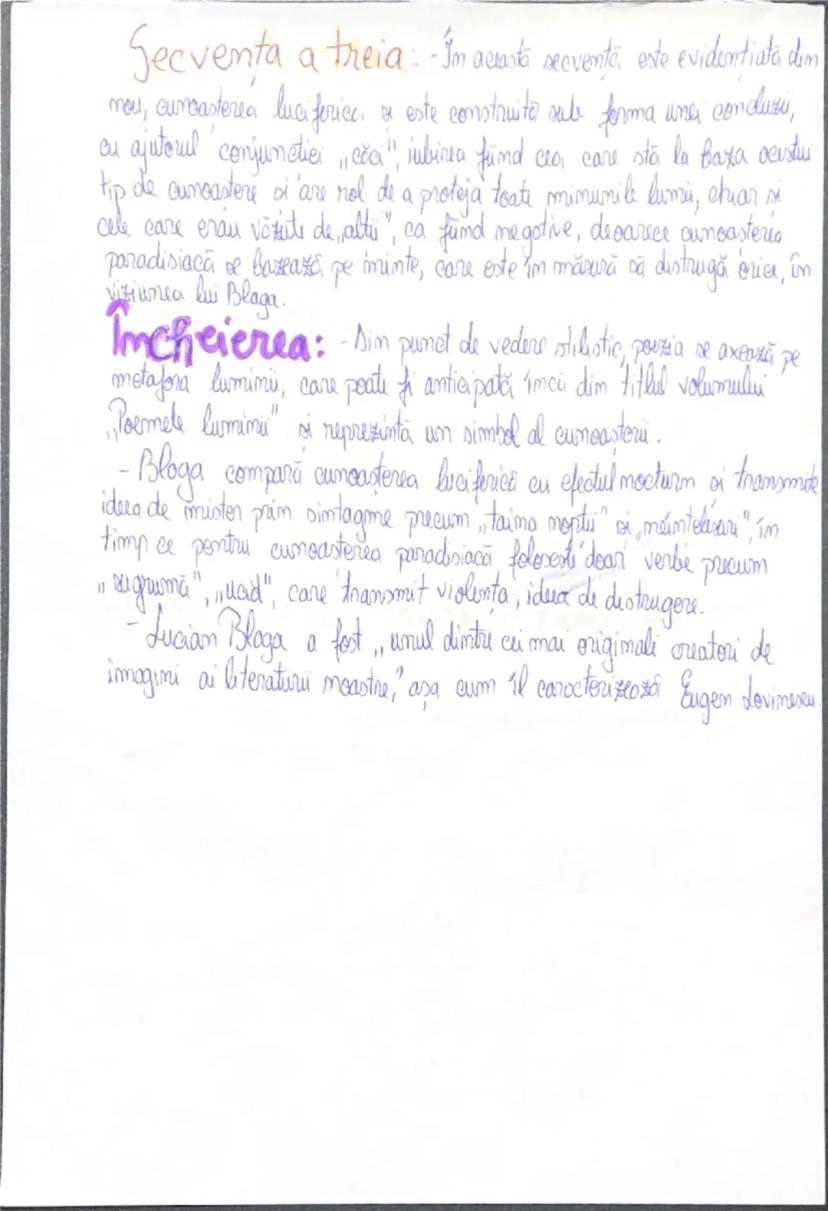 Secvența a treia: - În această secvență, este evidențiată din
nou, cunoașterea luciferică și este construită sub forma unei concluzii,
cu ajutorul conjuncției „căci", iubirea fiind cea care stă la baza acestui
tip de cunoaștere și are rol de a proteja toate minunile lumii, chiar și
cele care erau văzute de „alții", ca fiind negative, deoarece cunoașterea
paradisiacă se bazează pe minte, care este în măsură să distrugă orice, în
viziunea lui Blaga.
Încheierea: - Din punct de vedere stilistic, poezia se axează pe
metafora luminii, care poate fi anticipată încă din titlul volumului
„Poemele luminii" și reprezintă un simbol al cunoașterii.
- Blaga compară cunoașterea luciferică cu efectul nocturn și transmite
ideea de mister prin sintagme precum „taina nopții" și „neînțelesuri", în
timp ce pentru cunoașterea paradisiacă folosește doar verbe precum
„sugrumă", „ucid", care transmit violența, ideea de distrugere.
- Lucian Blaga a fost „unul dintre cei mai originali creatori de
imagini ai literaturii noastre," așa cum îl caracterizează Eugen Lovinescu.